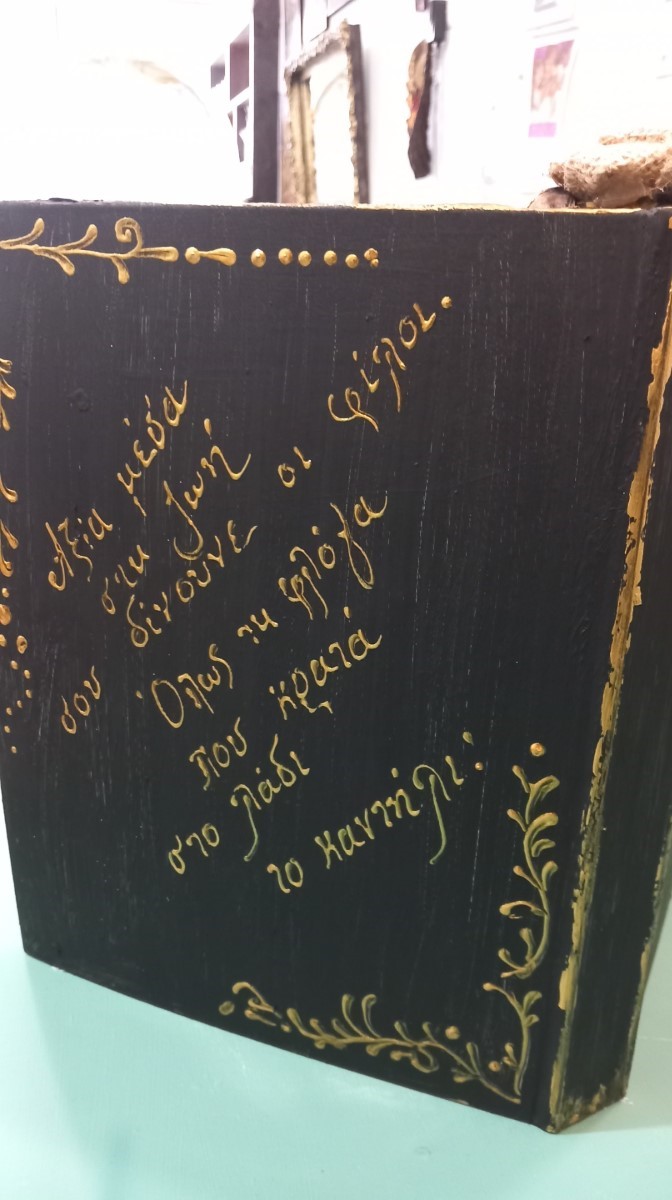 Αξία μέσα
στη ζωή
σου δίνουνε οι φίλοι.
Όπως τη φλόγα
που κρατά
στο λάδι
το καντήλι!